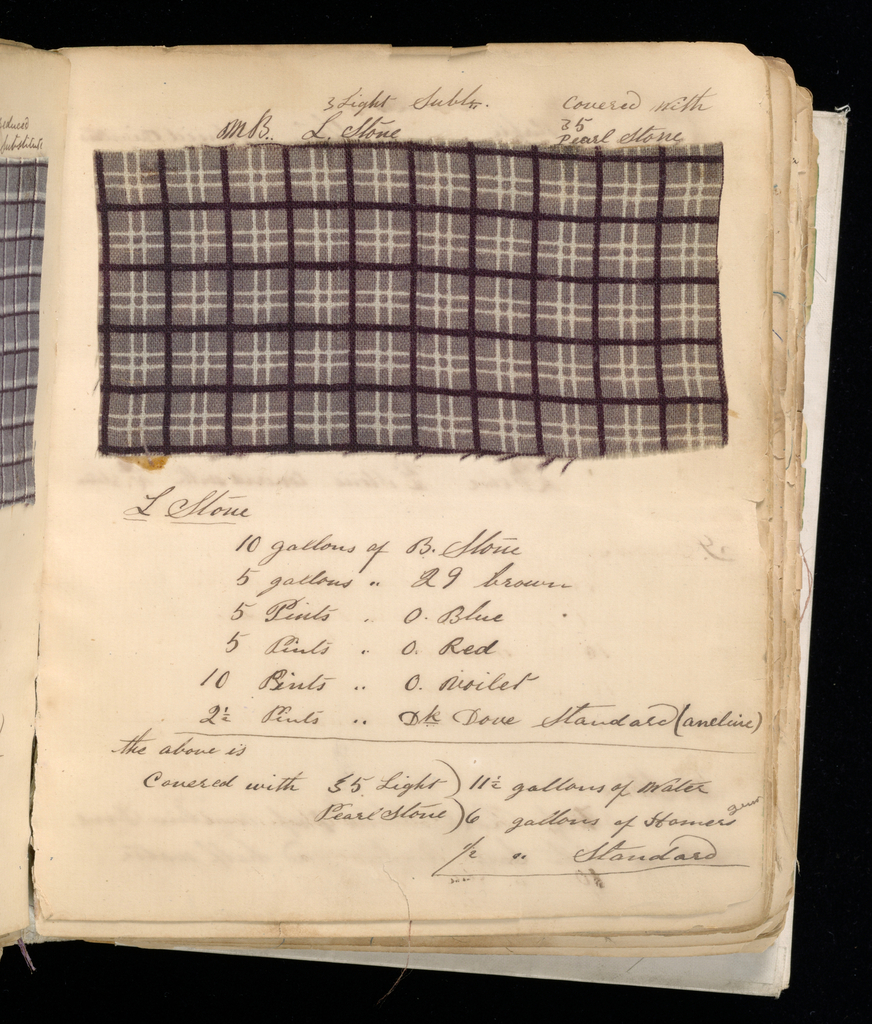 reduced
Substitute
3 Light Subte.
Covered with
MB. L. Stone
35
Pearl Stone
L Stone
10 gallons of B. Stone
5 gallons " 29 brown
5 Pints " O. Blue
5 Pints " O. Red
10 Pints " O. Voilet
2½ Pints " Dk Dove Standard (aneline)
the above is
Covered with 35 Light ) 11½ gallons of Water
Pearl Stone ) 6 gallons of Homers gum
1/2 " Standard